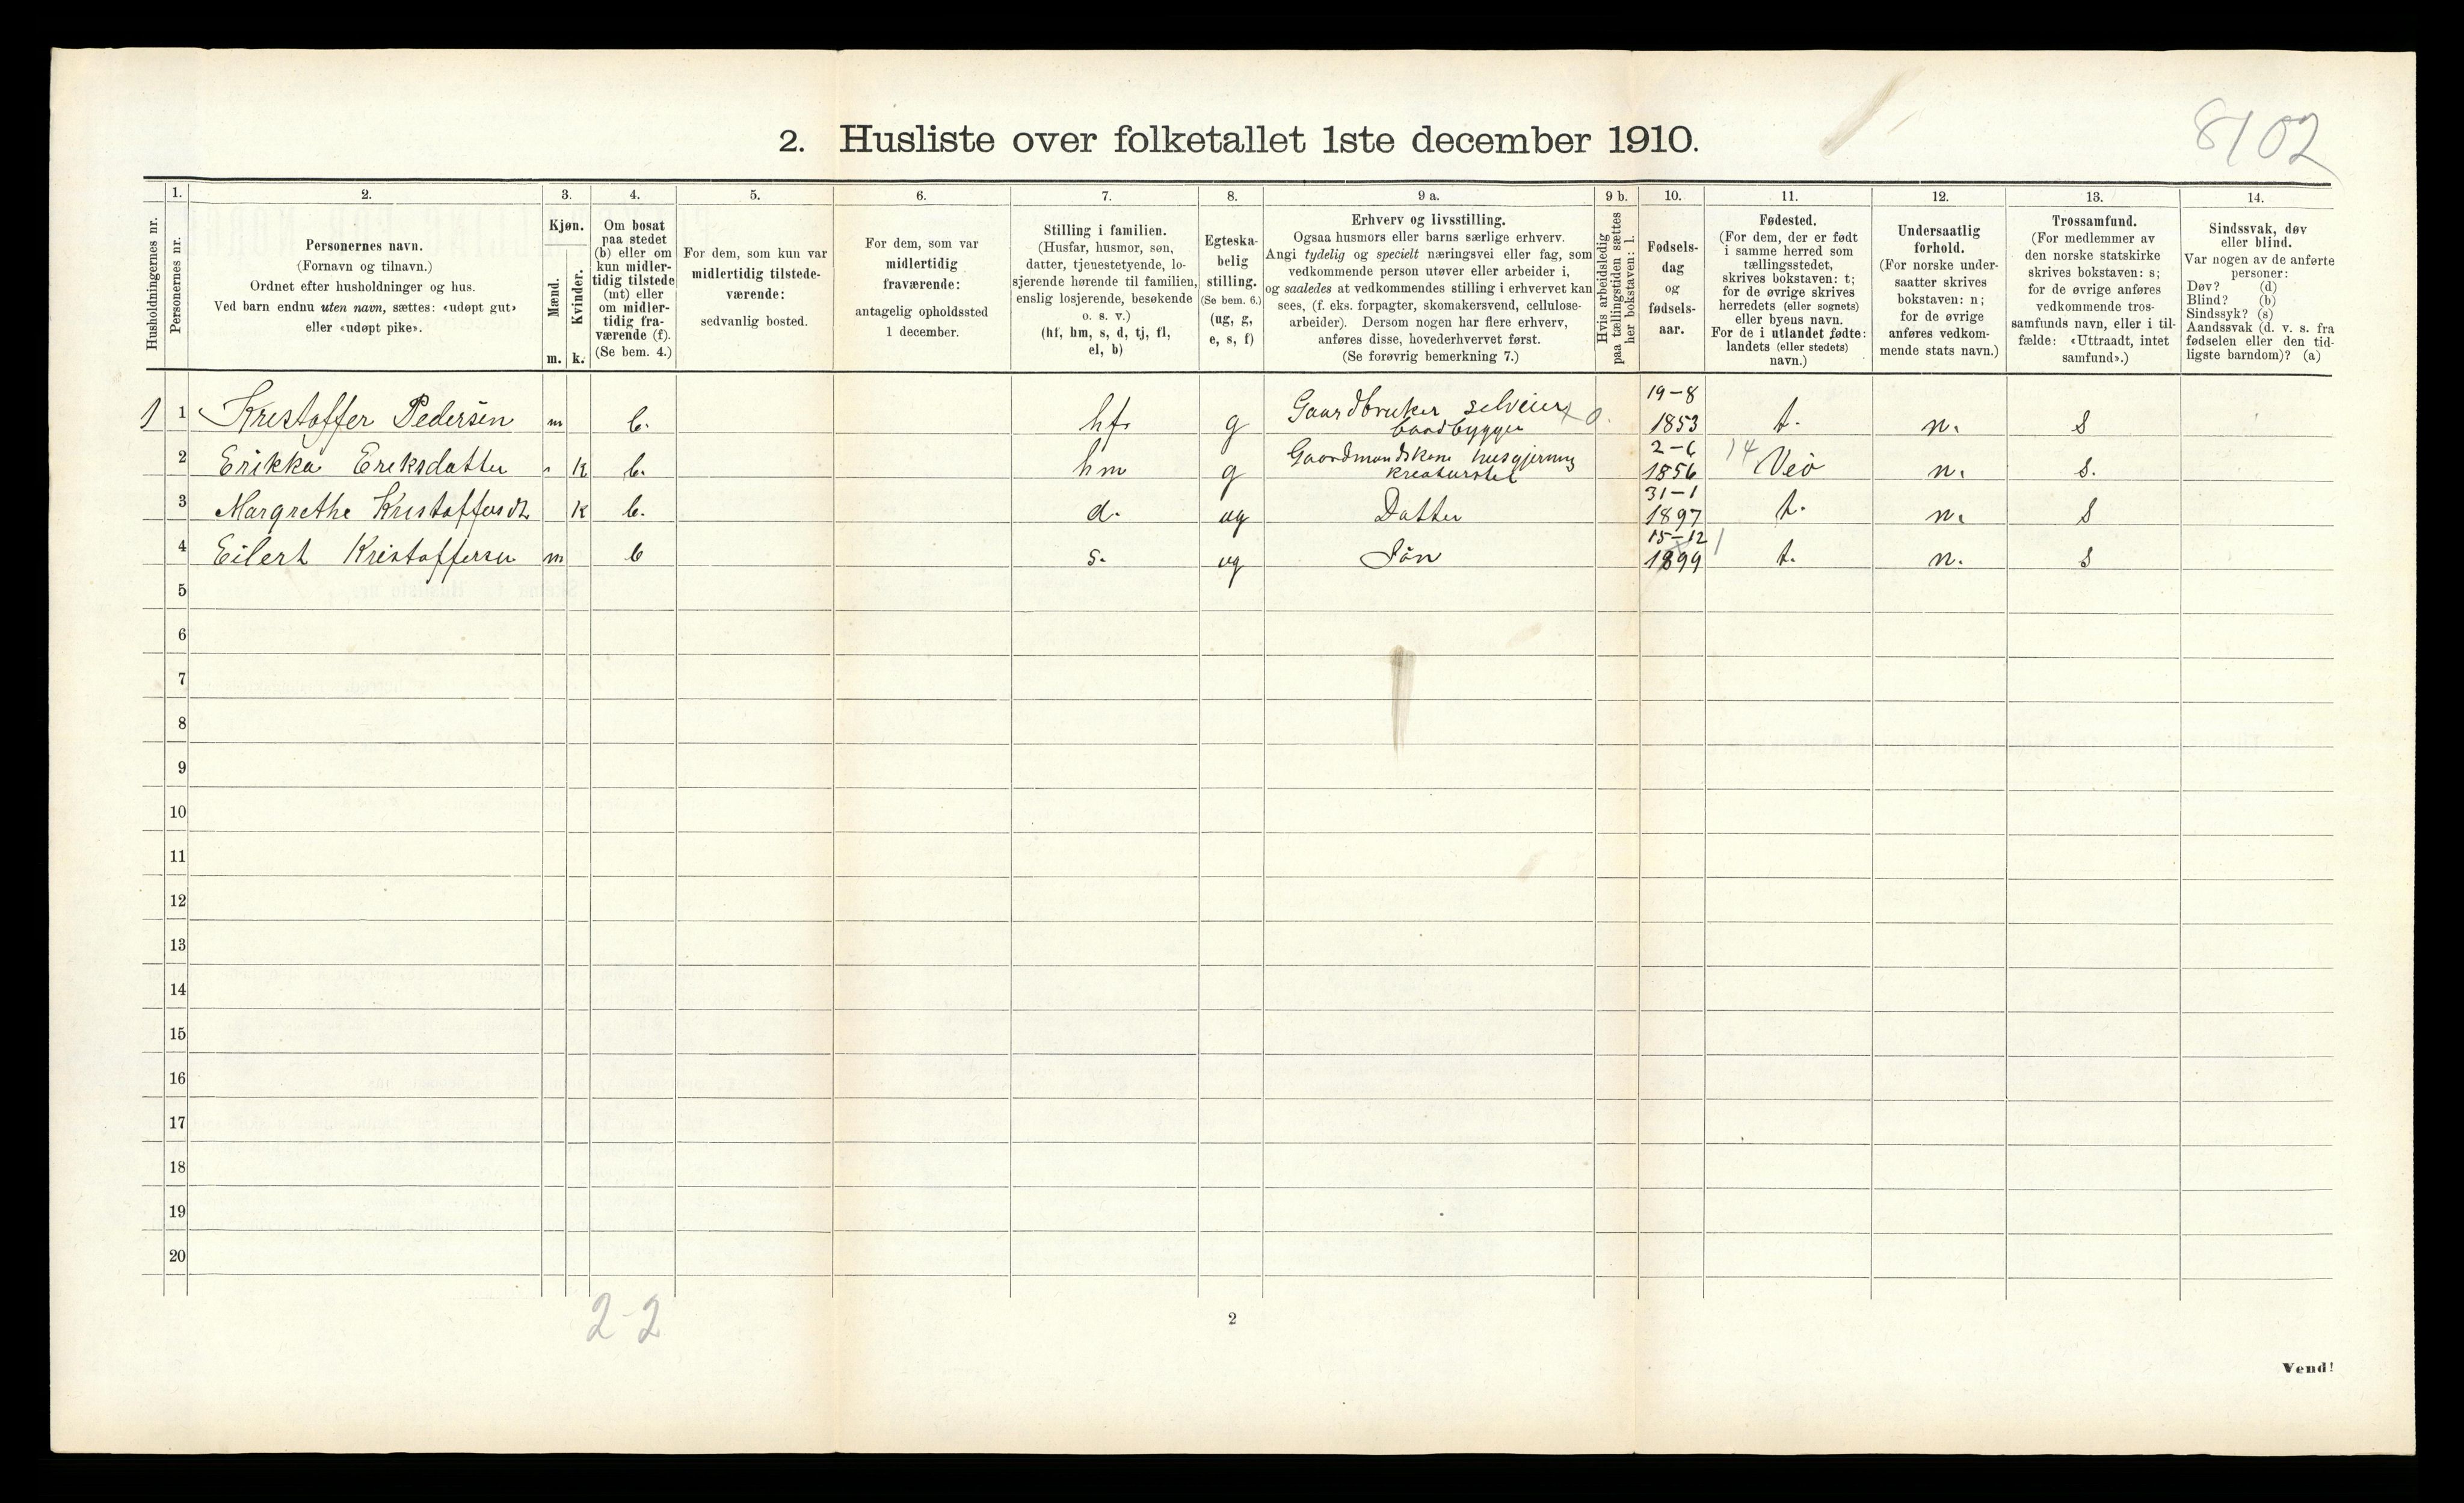 8102
2. Husliste over folketallet 1ste december 1910.
Husholdningernes nr.
1.
Personernes nr.
2.
Personernes navn.
(Fornavn og tilnavn.)
Ordnet efter husholdninger og hus.
Ved barn endnu uten navn, sættes: «udøpt gut»
eller «udøpt pike».
3.
Kjøn.
Mænd.
Kvinder.
m. k.
4.
Om bosat
paa stedet
(b) eller om
kun midler-
tidig tilstede
(mt) eller
om midler-
tidig fra-
værende (f).
(Se bem. 4.)
5.
For dem, som kun var
midlertidig tilstede-
værende:
sedvanlig bosted.
6.
For dem, som var
midlertidig
fraværende:
antagelig opholdssted
1 december.
7.
Stilling i familien.
(Husfar, husmor, søn,
datter, tjenestetyende, lo-
sjerende hørende til familien,
enslig losjerende, besøkende
o. s. v.)
(hf, hm, s, d, tj, fl,
el, b)
8.
Egteska-
belig
stilling.
(Se bem. 6.)
(ug, g,
e, s, f)
9 a.
Erhverv og livsstilling.
Ogsaa husmors eller barns særlige erhverv.
Angi tydelig og specielt næringsvei eller fag, som
vedkommende person utøver eller arbeider i,
og saaledes at vedkommendes stilling i erhvervet kan
sees, (f. eks. forpagter, skomakersvend, cellulose-
arbeider). Dersom nogen har flere erhverv,
anføres disse, hovederhvervet først.
(Se forøvrig bemerkning 7.)
9 b.
Hvis arbeidsledig
paa tællingstiden sættes
her bokstaven: l.
10.
Fødsels-
dag
og
fødsels-
aar.
11.
Fødested.
(For dem, der er født
i samme herred som
tællingsstedet,
skrives bokstaven: t;
for de øvrige skrives
herredets (eller sognets)
eller byens navn.
For de i utlandet fødte:
landets (eller stedets)
navn.)
12.
Undersaatlig
forhold.
(For norske under-
saatter skrives
bokstaven: n;
for de øvrige
anføres vedkom-
mende stats navn.)
13.
Trossamfund.
(For medlemmer av
den norske statskirke
skrives bokstaven: s;
for de øvrige anføres
vedkommende tros-
samfunds navn, eller i til-
fælde: «Uttraadt, intet
samfund».)
14.
Sindssvak, døv
eller blind.
Var nogen av de anførte
personer:
Døv? (d)
Blind? (b)
Sindssyk? (s)
Aandssvak (d. v. s. fra
fødselen eller den tid-
ligste barndom)? (a)
1 1 Kristoffer Pedersen m b. hf. g Gaardbruker selveier 0. 19-8 1853 t. n. s
baadbygger
2 Erikka Eriksdatter k b. hm g Gaardmandskone husgjerning 2-6 1856 14 Veö n. s.
kreaturstel
3 Margrethe Kristoffersdt. k b. d. ug Datter 31-1 1897 t. n. s
4 Eilert Kristoffersen m b s. ug Sön 15-12 1899 1 t. n. s
5
6
7
8
9
10
11
12
13
14
15
16
17
18
19
20
2-2
2
Vend!